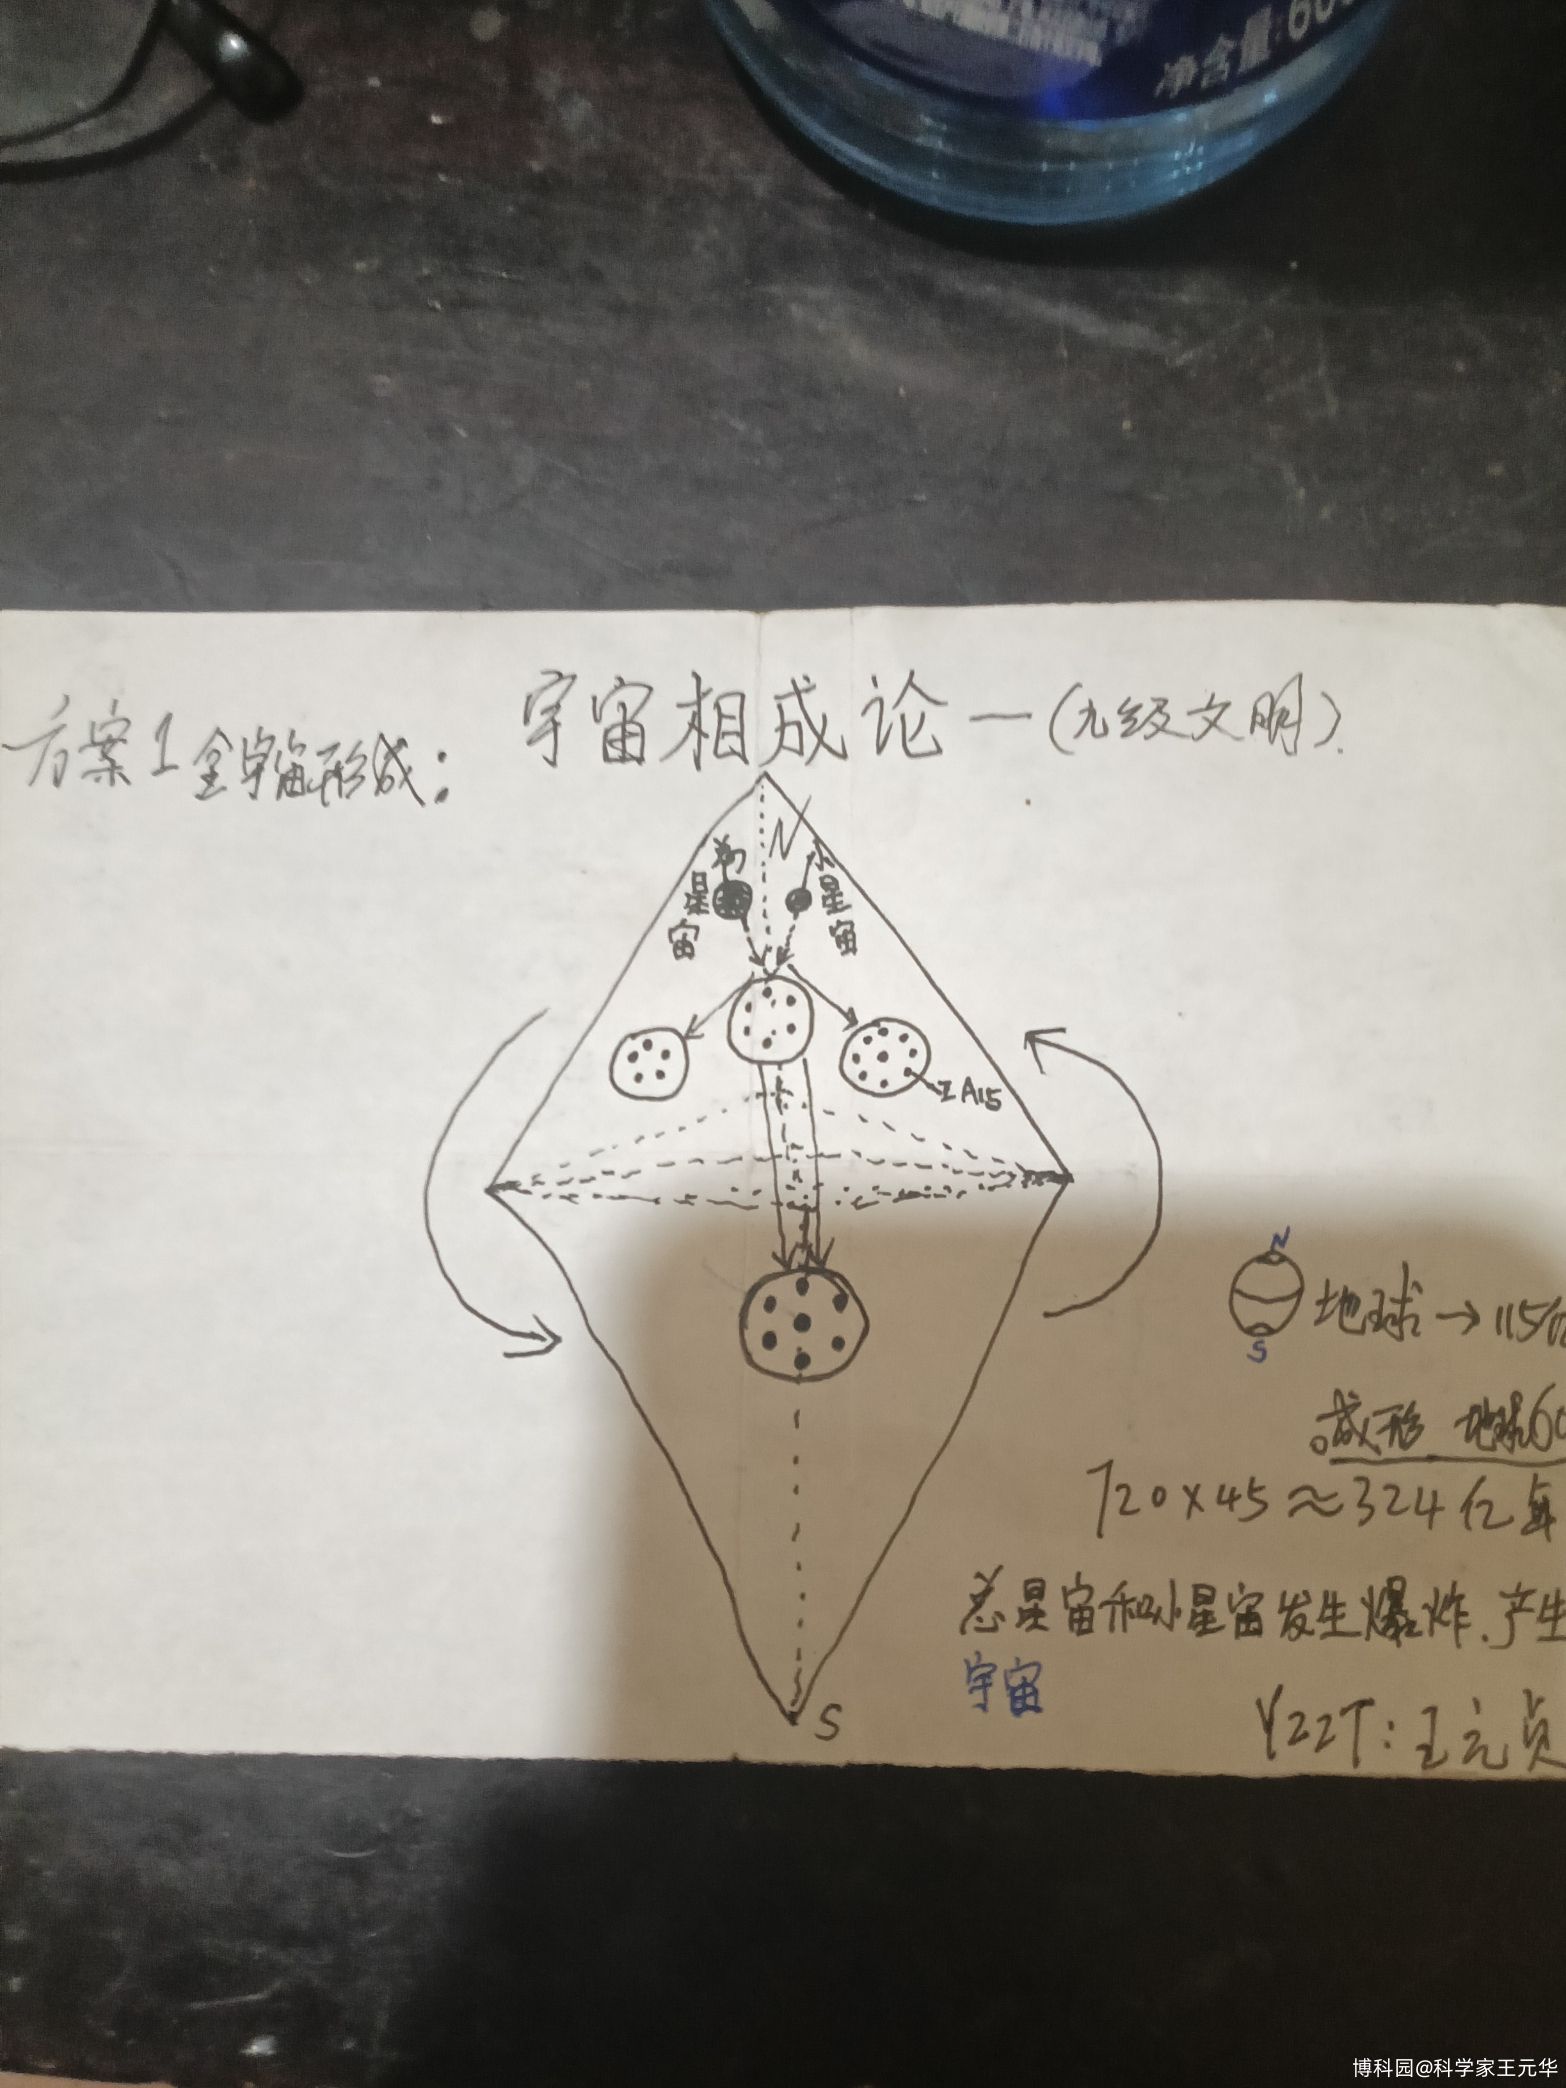 净含量:60
宇宙相成论一(九级文明).
方案1全宇宙形成:
N
星宙
小星宙
IA15
N
地球→115亿
S
成形 地球60
720×45≈324亿年
总星宙和小星宙发生爆炸.产生
宇宙
S
Y22T:王元贞
博科园@科学家王元华